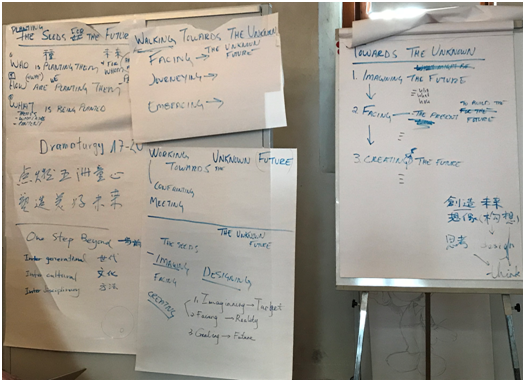 PLANTING
THE SEEDS THE FUTURE
種 未來
WHO IS PLANTING THEM
(HOW) WE
HOW ARE PLANTING THEM
WHAT IS BEING PLANTED
Dramaturgy 17-20
點燃五洲童心
塑造美好未來
One Step Beyond
Inter generational 世代
Inter cultural 文化
Inter disciplinary
WALKING TOWARDS THE UNKNOWN
FACING → THE UNKNOWN
FUTURE
JOURNEYING →
EMBRACING →
WORKING UNKNOWN FUTURE
TOWARDS THE
CONFRONTING
MEETING
THE UNKNOWN
THE SEEDS FUTURE
IMAGINING
FACING DESIGNING
CREATING
1. Imagining →
2. Facing → Reality
3. Creating → Future
TOWARDS THE UNKNOWN
1. IMAGINING THE FUTURE
WHY
WHAT
HOW
2. FACING → THE PRESENT TO BUILD THE
FUTURE
3. CREATING THE FUTURE
創造 未來
想像 构想
思考 design
think